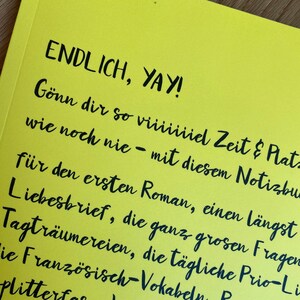 ENDLICH, YAY!
Gönn dir so viiiiiiiel Zeit & Platz
wie noch nie – mit diesem Notizbu
für den ersten Roman, einen längst
Liebesbrief, die ganz großen Fragen
Tagträumereien, die tägliche Prio-Li
die Französisch-Vokabeln, R
splitterfas